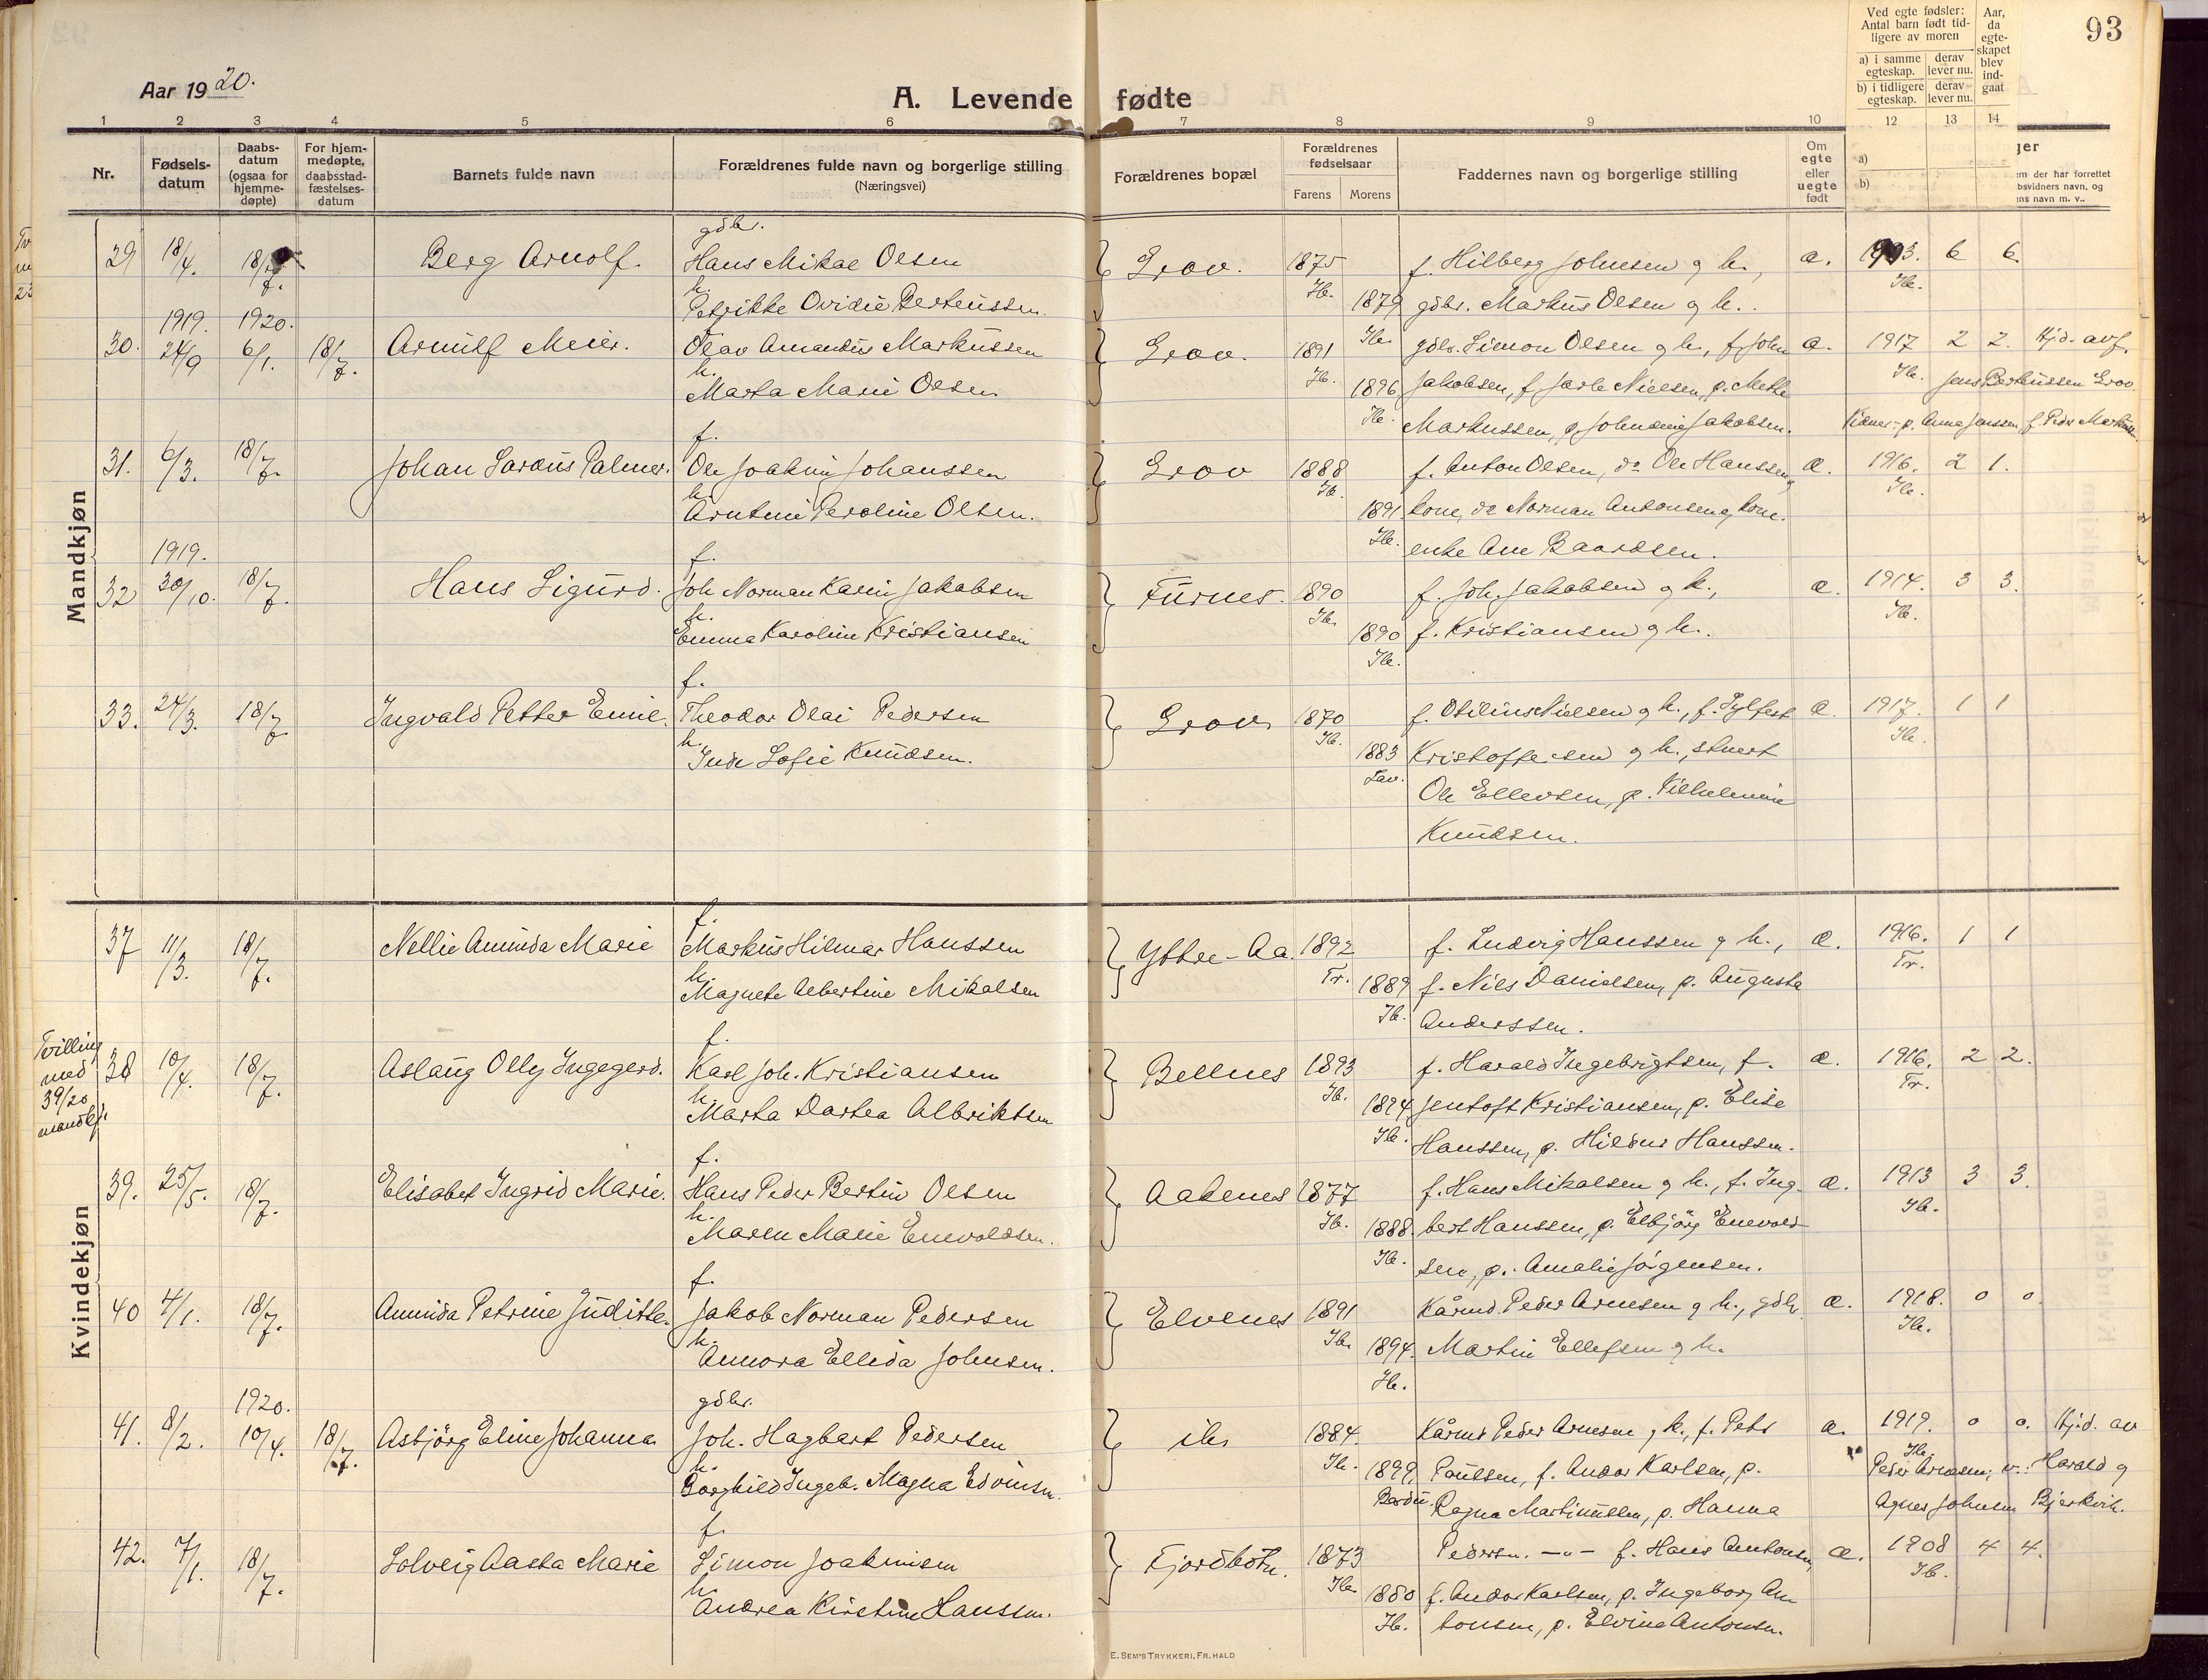 93
Aar 1920.
A. Levende fødte
Ved egte fødsler: Antal barn født tidligere av moren
a) i samme egteskap. derav lever nu.
b) i tidligere egteskap. derav lever nu.
Aar, da egteskapet blev indgaat
1 2 3 4 5 6 7 8 9 10 12 13 14
Nr.
Fødselsdatum
Daabsdatum (ogsaa for hjemmedøpte)
For hjemmedøpte, daabsstadfæstelsesdatum
Barnets fulde navn
Forældrenes fulde navn og borgerlige stilling (Næringsvei)
Forældrenes bopæl
Forældrenes fødselsaar
Farens Morens
Faddernes navn og borgerlig stilling
Om egte eller uegte født
a)
b)
Mandkjøn
gdbr.
29 18/4. 18/7. Berg Arnolf. Hans Mikal Olsen Grov. 1875 f. Hilberg Johnsen og h., æ. 6 6.
Ib. Ib.
h. Petrikke Ovidie Berteussen. 1879 gdbr. Markus Olsen og h..
1919. 1920. Ib.
30. 24/9 6/1. 18/7. Arnulf Meier. Olav Amandus Markussen Grov. 1891 gdbr. Simon Olsen og h., f. John æ. 1917 2 2. Hjd. av f.
Ib. Ib. Jens Berteussen Grov
h. Marta Marie Olsen 1896 Jakobsen, f. Jarle Nielsen, p. Mette
Ib. Markussen, p. Johndine Jakobsen. Vidner:- p. Anna Jenssen, f. Peder Markussen
f.
31. 6/3. 18/7. Johan Laraus Palmer. Ole Joakim Johanssen Grov 1888 f. Anton Olsen, do Ole Hanssen og æ. 1916. 2 1.
Ib. Ib.
h. Arntine Peroline Olsen. 1891 kone, do Norman Antonsen og kone.
Ib. enke Ane Baardsen.
1919. f.
32 30/10. 18/7. Hans Sigurd. Joh. Norman Karin Jakobsen Furnes. 1890 f. Joh. Jakobsen og h., æ. 1914. 3 3.
Ib. Ib.
h. Emma Karoline Kristiansen 1890 f. Kristiansen og h..
Ib.
f.
33. 24/3. 18/7. Ingvald Petter Emil. Theodor Olai Pedersen Grov 1870 f. Otilius Nielsen og h., f. Sylfest æ. 1917. 1 1
Ib. Ib.
h. Inda Sofie Knudsen. 1883 Kristoffersen og h., stuert
Lav. Ole Ellevsen, p. Vilhelmine
Knudsen.
Kvindekjøn
f.
37 11/3. 18/7. Nellie Aminda Marie Markus Hilmar Hanssen Yttre-Aa. 1892 f. Ludvig Hanssen og h., æ. 1916. 1 1
Tr. Tr.
h. Magnete Albertine Mikalsen 1889 f. Nils Danielsen, p. Augusta
Ib. Anderssen.
Tvilling med 39/20 mandkj.
f.
38 10/4. 18/7. Aslaug Olly Ingegerd. Karl Joh. Kristiansen Bellnes 1893 f. Harald Ingebrigtsen, f. æ. 1916. 2 2.
Ib. Tr.
h. Marta Dortea Albriktsen 1894 Jentoft Kristiansen, p. Elise
Ib. Hanssen, p. Hildur Hanssen.
f.
39. 25/5. 18/7. Elisabet Ingrid Marie. Hans Peder Bertin Olsen Aakenes 1877 f. Hans Mikalsen og h., f. Ing- æ. 1913 3 3.
Ib. Ib.
h. Maren Marie Enevoldsen. 1888. bert Hanssen, p. Elbjörg Enevold-
Ib. sen, p. Amalie Jörgensen.
f.
40 4/1. 18/7. Aminda Petrine Juditte. Jakob Norman Pedersen Elvenes 1891 Kårmd. Peder Arnesen og h., gdbr. æ. 1918. 0 0.
Ib. Ib.
h. Annora Ellida Johnsen. 1894. Martin Ellefsen og h.
Ib.
1920. gdbr.
41. 8/2. 10/4. 18/7. Asbjörg Eline Johanna Joh. Hagbart Pedersen ib. 1884. Kårmd Peder Arnesen og h., f. Petr æ. 1919. 0 0. Hj.d. av
Ib. Ib.
h. Borghild Ingeb. Magna Edvinsen. 1899. Poulsen, f. Andor Karlsen, p. Peder Arnesen; v.: Harald og
Bardu. Ragna Martinussen, p. Hanna Agnes Johnsen Bjerkvik.
f.
42. 7/1. 18/7. Solveig Aasta Marie Simon Joakimsen Fjordbotn. 1873 Pedersen. —"— f. Hans Antonsen, æ. 1908 4 4.
Ib. Ib.
h. Andrea Kirstine Hanssen. 1880 f. Andor Karlsen, p. Ingeborg An-
Ib. tonsen, p. Elvine Antonsen.
E. SEM'S TRYKKERI, FR.HALD